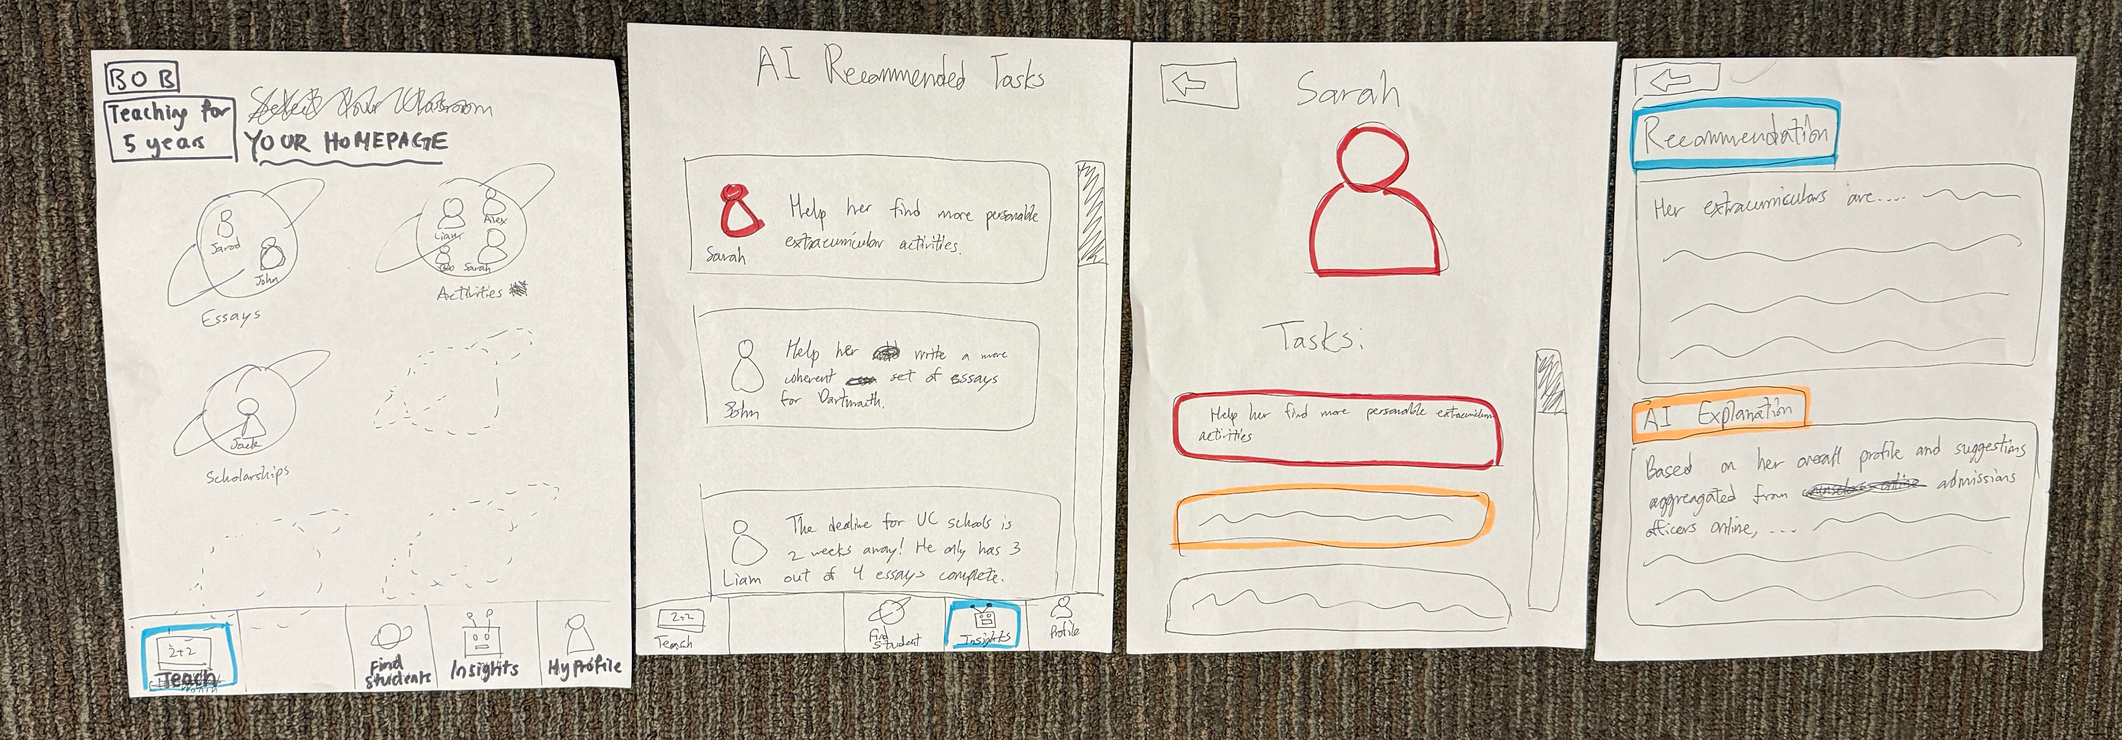 BOB
Teaching for
5 years
Select Your Classroom
YOUR HOMEPAGE
Jarod
John
Essays
Liam
Alex
Sarah
Activities
Jack
Scholarships
2+2
Teach
Find
Students
Insights
My Profile
AI Recommended Tasks
Sarah
Help her find more personable
extracurricular activities.
John
Help her write a more
coherent set of essays
for Dartmouth.
Liam
The dealine for UC schools is
2 weeks away! He only has 3
out of 4 essays complete.
2+2
Teach
Find
Student
Insights
Profile
Sarah
Tasks:
Help her find more personable extracurricular
activities
Recommendation
Her extracurriculars are....
AI Explanation
Based on her overall profile and suggestions
aggreagated from admissions
officers online, ....